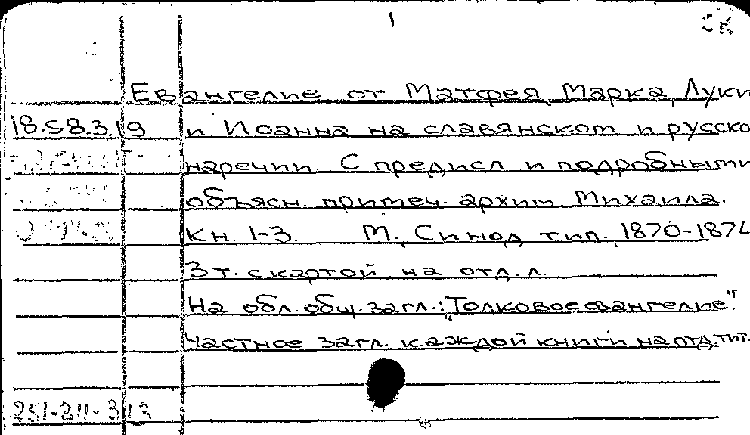 1
Евангелие от Матфея, Марка, Луки
18.58.3.19 и Иоанна на славянском и русско
наречии. С предисл. и подробными
объясн. примеч. архим. Михаила.
Кн. 1-3. М., Синод. тип., 1870-187
3 т. с картой на отд. л.
На обл. общ. загл.: "Толковое евангелие".
Частное загл. каждой книги на отд. тит.